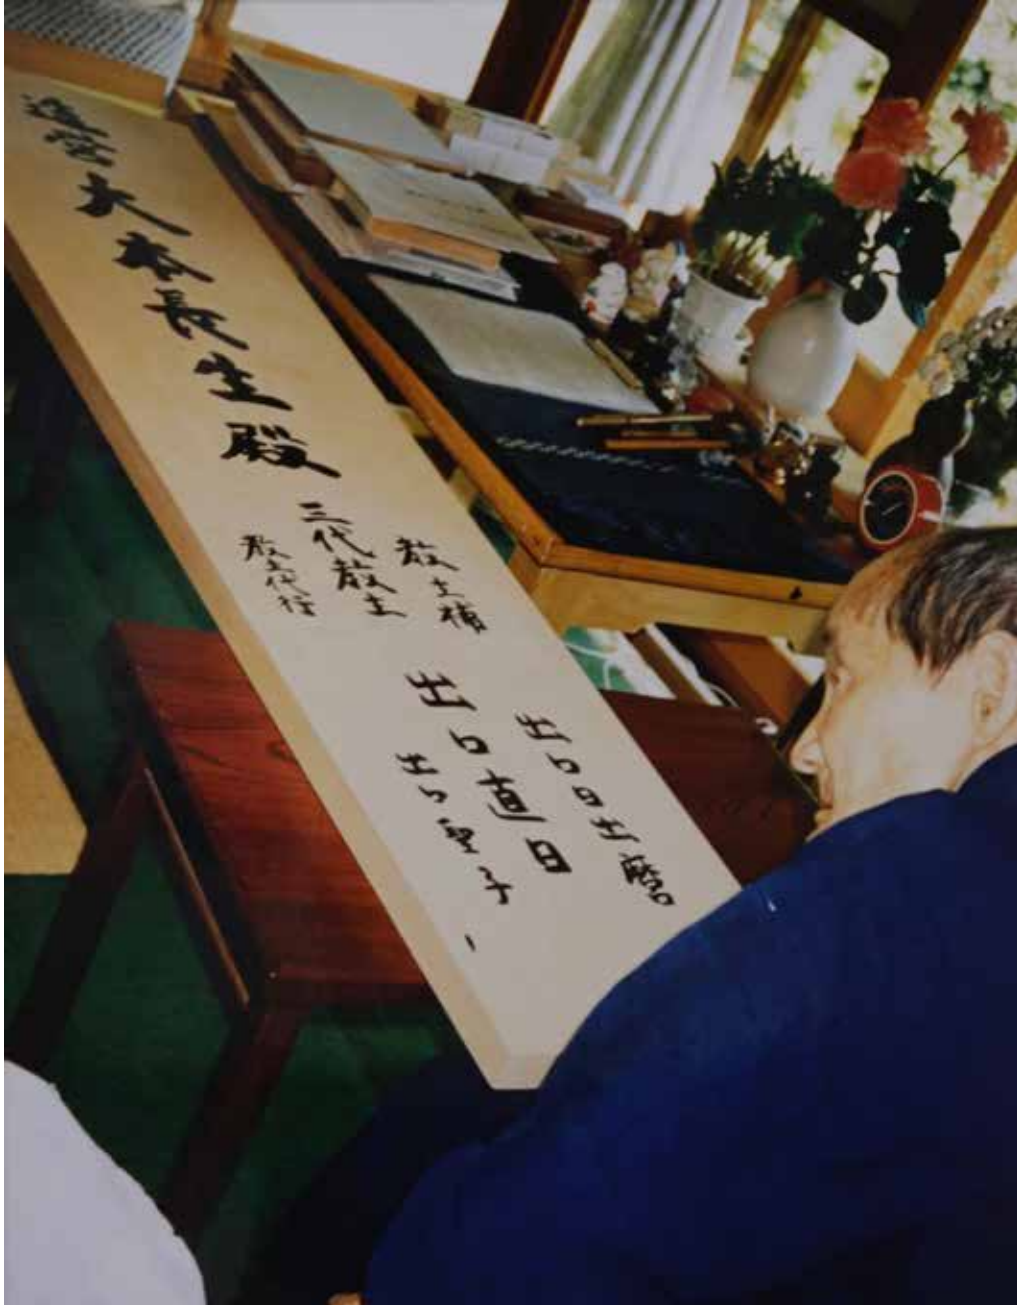 造営大本長生殿
教主補 出口日出麿
三代教主 出口直日
教主代行 出口聖子